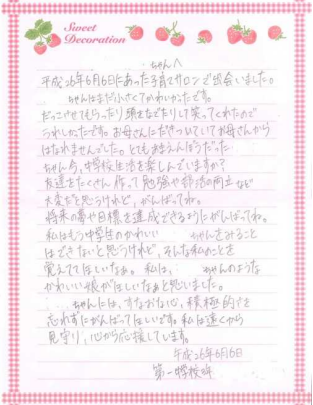 Sweet
Decoration
ちゃんへ
平成26年6月6日にあった子育てサロンで出会いました。
ちゃんはまだ小さくてかわいかったです。
だっこさせてもらったり頭をなでたりして笑ってくれたので
うれしかったです。お母さんにだきついていてお母さんから
はなれませんでした。とてもあまえんぼうだった
ちゃん今、中学校生活を楽しんでいますか?
友達をたくさん作って勉強や部活の両立など
大変だと思うけれど、がんばってね。
将来の夢や目標を達成できるようにがんばってね。
私はもう中学生のかわいい ちゃんをみること
はできないと思うけれど、そんな私のことを
覚えててほしいなぁ。私は、 ちゃんのような
かわいい娘がほしいなぁと思いました。
ちゃんには、すなおな心、積極的さを
忘れずにがんばってほしいです。私は遠くから
見守り、心から応援しています。
平成26年6月6日
第一中学校